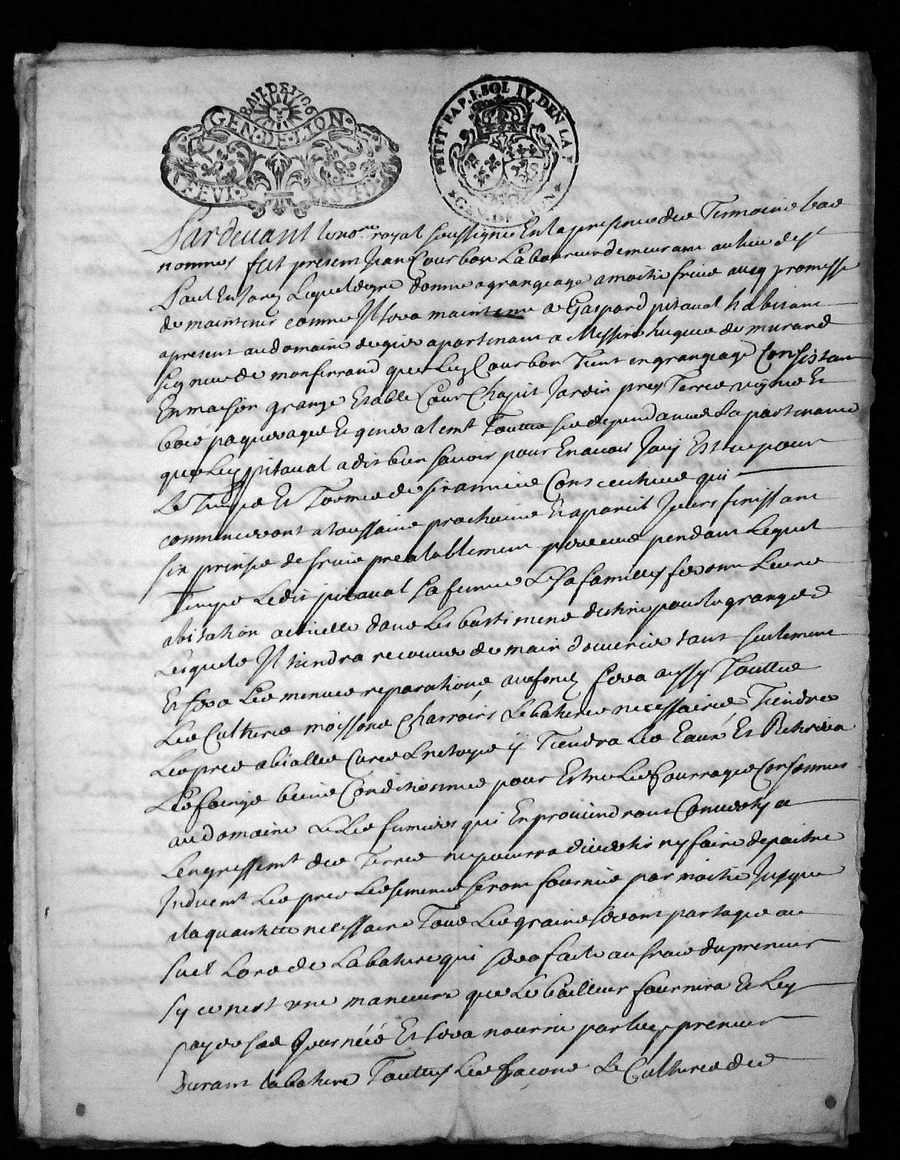 BAIL DE 1706
GEN·DE·LION
PETIT PAP. 1. SOL IV. DEN. LA F
GEN. DE
Pardevant le no.re royal soussigné En la presence des Temoins bas
nommes fut present Jean Courbon Laboureur demeurant au lieu de S.t
Paul En Jarez Lequel de gré donne a grangeage a moitié fruis avecq promesse
de maintenir comme Il sera maintenu a Gaspard pitaval habitant
a present au domaine de apartenant a Messire hugue de murard
signeur de monferrand que Led Courbon Tient en grangeage Consistan
En maison grange Estable Cour Chapit Jardin prez Terres vignes Et
bois paquerages Et generalemt Touttes ses dependances La partenances
que Led pitaval a dit bien savoir pour En avoir Jouy Est ce pour
Le Temps Et Terme de six années Consecutives qui
commenceront a Toussaint prochaine Et a pareil Jours finissant
six prinses de fruis prealablement perceues pendant Lequel
Temps Ledit pitaval sa femme Et sa famille feront Leur
abitation actuelle dans Les bastimens destinés pour le granger
Lesquels Il tiendra recouvers de main d'ouvrier tant seulement
Et fera Les menues reparations au fonds fera aussy Touttes
Les Cultures moissons Charrois Et batures necessaires Tiendra
Les prez abialles Curés Et netoyés y Tiendra Les Eaux Et Retirera
Les foings biens Conditionnés pour Estre Les fourrages Consommés
au domaine Et Les fumiers qui En proviendront Convertis a
Lengressemt des Terres ne pourra divertir ny faire depaitre
Induemt Les prez Les semences seront fournies par moitié Jusques
a la quantité necessaire Tous Les grains seront partagés au
suel Lors de La bature qui sera faite au frais du preneur
sy ce n'est une maneuvre que Le bailleur fournira Et Luy
payera sa Journée Et sera nourri par Led preneur
Durant La bature Touttes Les facons Et Cultures des